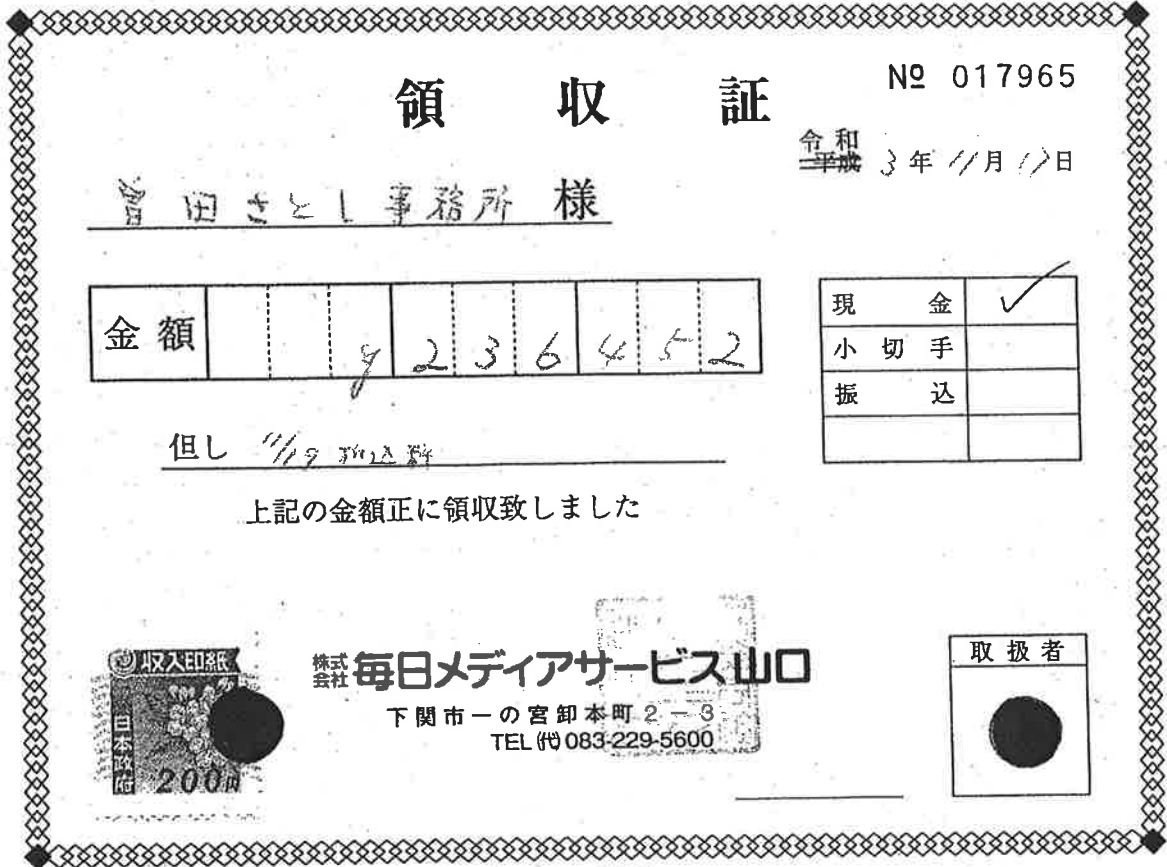 領収証
№ 017965
令和
平成 3年 11月 17日
曽田さとし事務所 様
金額 ¥236452
現金 ✓
小切手
振込
但し 11/19 折込料
上記の金額正に領収致しました
収入印紙
日本政府
200円
株式会社 毎日メディアサービス山口
下関市一の宮卸本町2-3
TEL(代)083-229-5600
取扱者